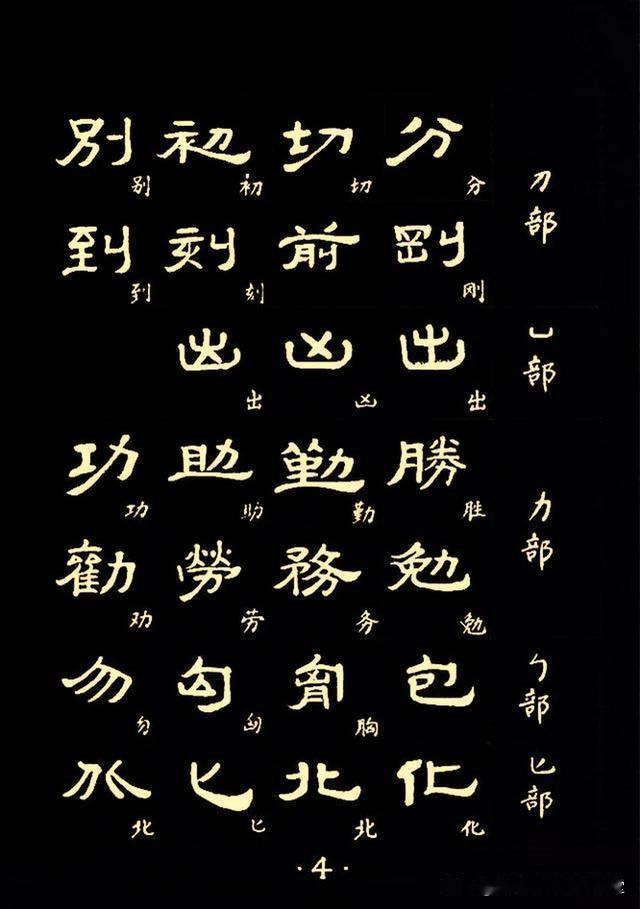 刀部
分 切 初 別
分 切 初 别
剛 前 刻 到
刚 刻 到
凵部
出 凶 出
出 凶 出
力部
勝 勤 助 功
胜 勤 助 功
勉 務 勞 勸
勉 务 劳 劝
勹部
包 胷 匈 勿
胸 匈 勿
匕部
化 北 匕 北
化 北 匕 北
·4·